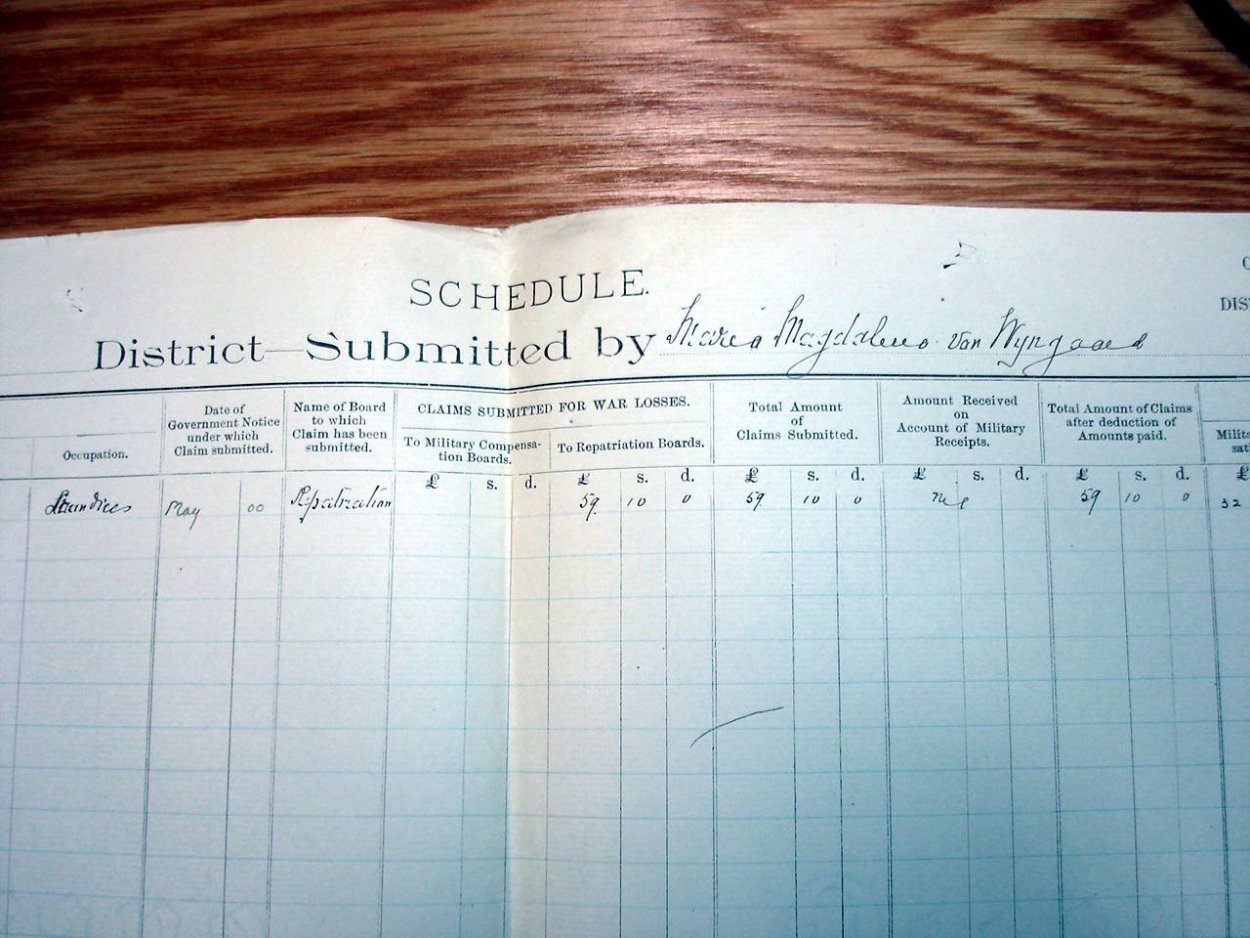 SCHEDULE.
District Submitted by Maria Magdalena van Wyngaard
DIS
Occupation.
Date of
Government Notice
under which
Claim submitted.
Name of Board
to which
Claim has been
submitted.
CLAIMS SUBMITTED FOR WAR LOSSES.
To Military Compensa-
tion Boards.
To Repatriation Boards.
Total Amount
of
Claims Submitted.
Amount Received
on
Account of Military
Receipts.
Total Amount of Claims
after deduction of
Amounts paid.
Milita
sat
£ s. d. £ s. d. £ s. d. £ s. d. £ s. d. £
May 00 Repatriation 59 10 0 59 10 0 59 10 0 32